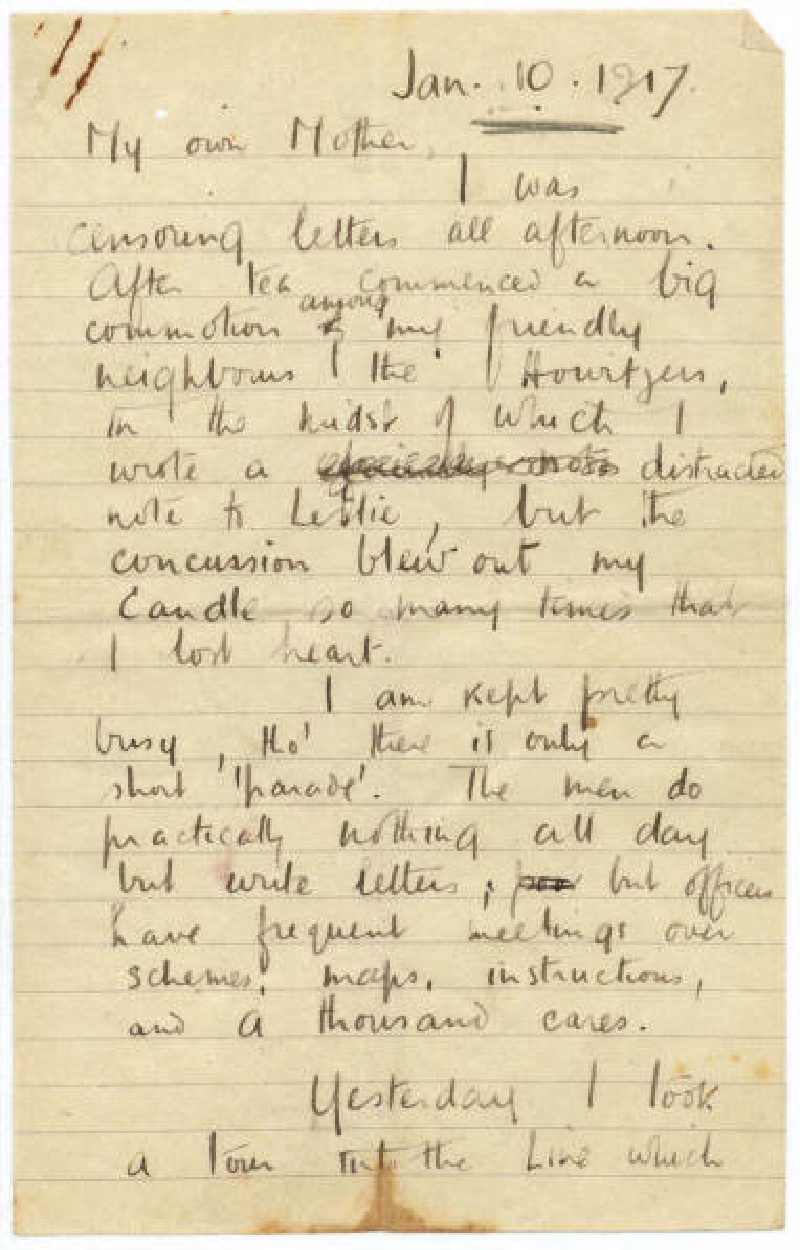 Jan. 10. 1917.
My own Mother,
I was
censoring letters all afternoon.
After tea commenced a big
commotion among my friendly
neighbours the Howitzers,
in the midst of which I
wrote a distracted
note to Leslie, but the
concussion blew out my
Candle so many times that
I lost heart.
I am kept pretty
busy, tho' there is only a
short 'parade'. The men do
practically nothing all day
but write letters; but officers
have frequent meetings over
schemes, maps, instructions,
and a thousand cares.
Yesterday I took
a tour into the Line which